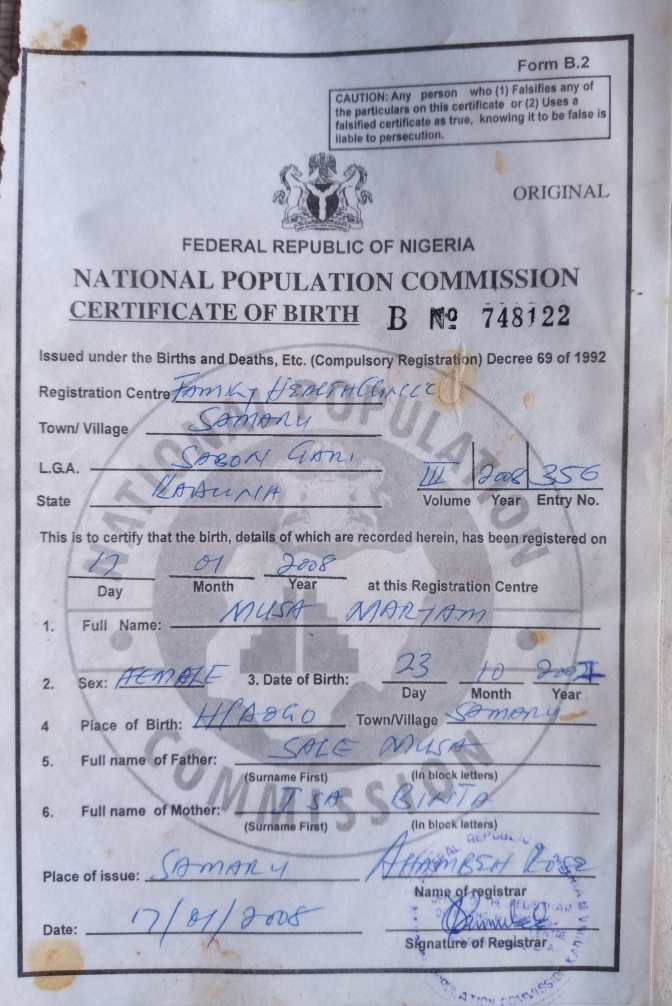 Form B.2
CAUTION: Any person who (1) Falsifies any of
the particulars on this certificate or (2) Uses a
falsified certificate as true, knowing it to be false is
liable to persecution.
ORIGINAL
FEDERAL REPUBLIC OF NIGERIA
NATIONAL POPULATION COMMISSION
CERTIFICATE OF BIRTH B Nº 748122
Issued under the Births and Deaths, Etc. (Compulsory Registration) Decree 69 of 1992
Registration Centre FAMILY HEALTH CLINIC
Town/ Village SAMARU
L.G.A. SABON GARI
State KADUNA
III 2008 356
Volume Year Entry No.
This is to certify that the birth, details of which are recorded herein, has been registered on
17 01 2008
Day Month Year at this Registration Centre
1. Full Name: MUSA MARYAM
2. Sex: FEMALE 3. Date of Birth: 23 10
Day Month Year
4 Place of Birth: Town/Village SAMARU
5. Full name of Father: SALE MUSA
(Surname First) (In block letters)
6. Full name of Mother: ISA BINTA
(Surname First) (In block letters)
Place of issue: SAMARU
Name of registrar
Date: 17/01/2008
Signature of Registrar
NATIONAL POPULATION
COMMISSION